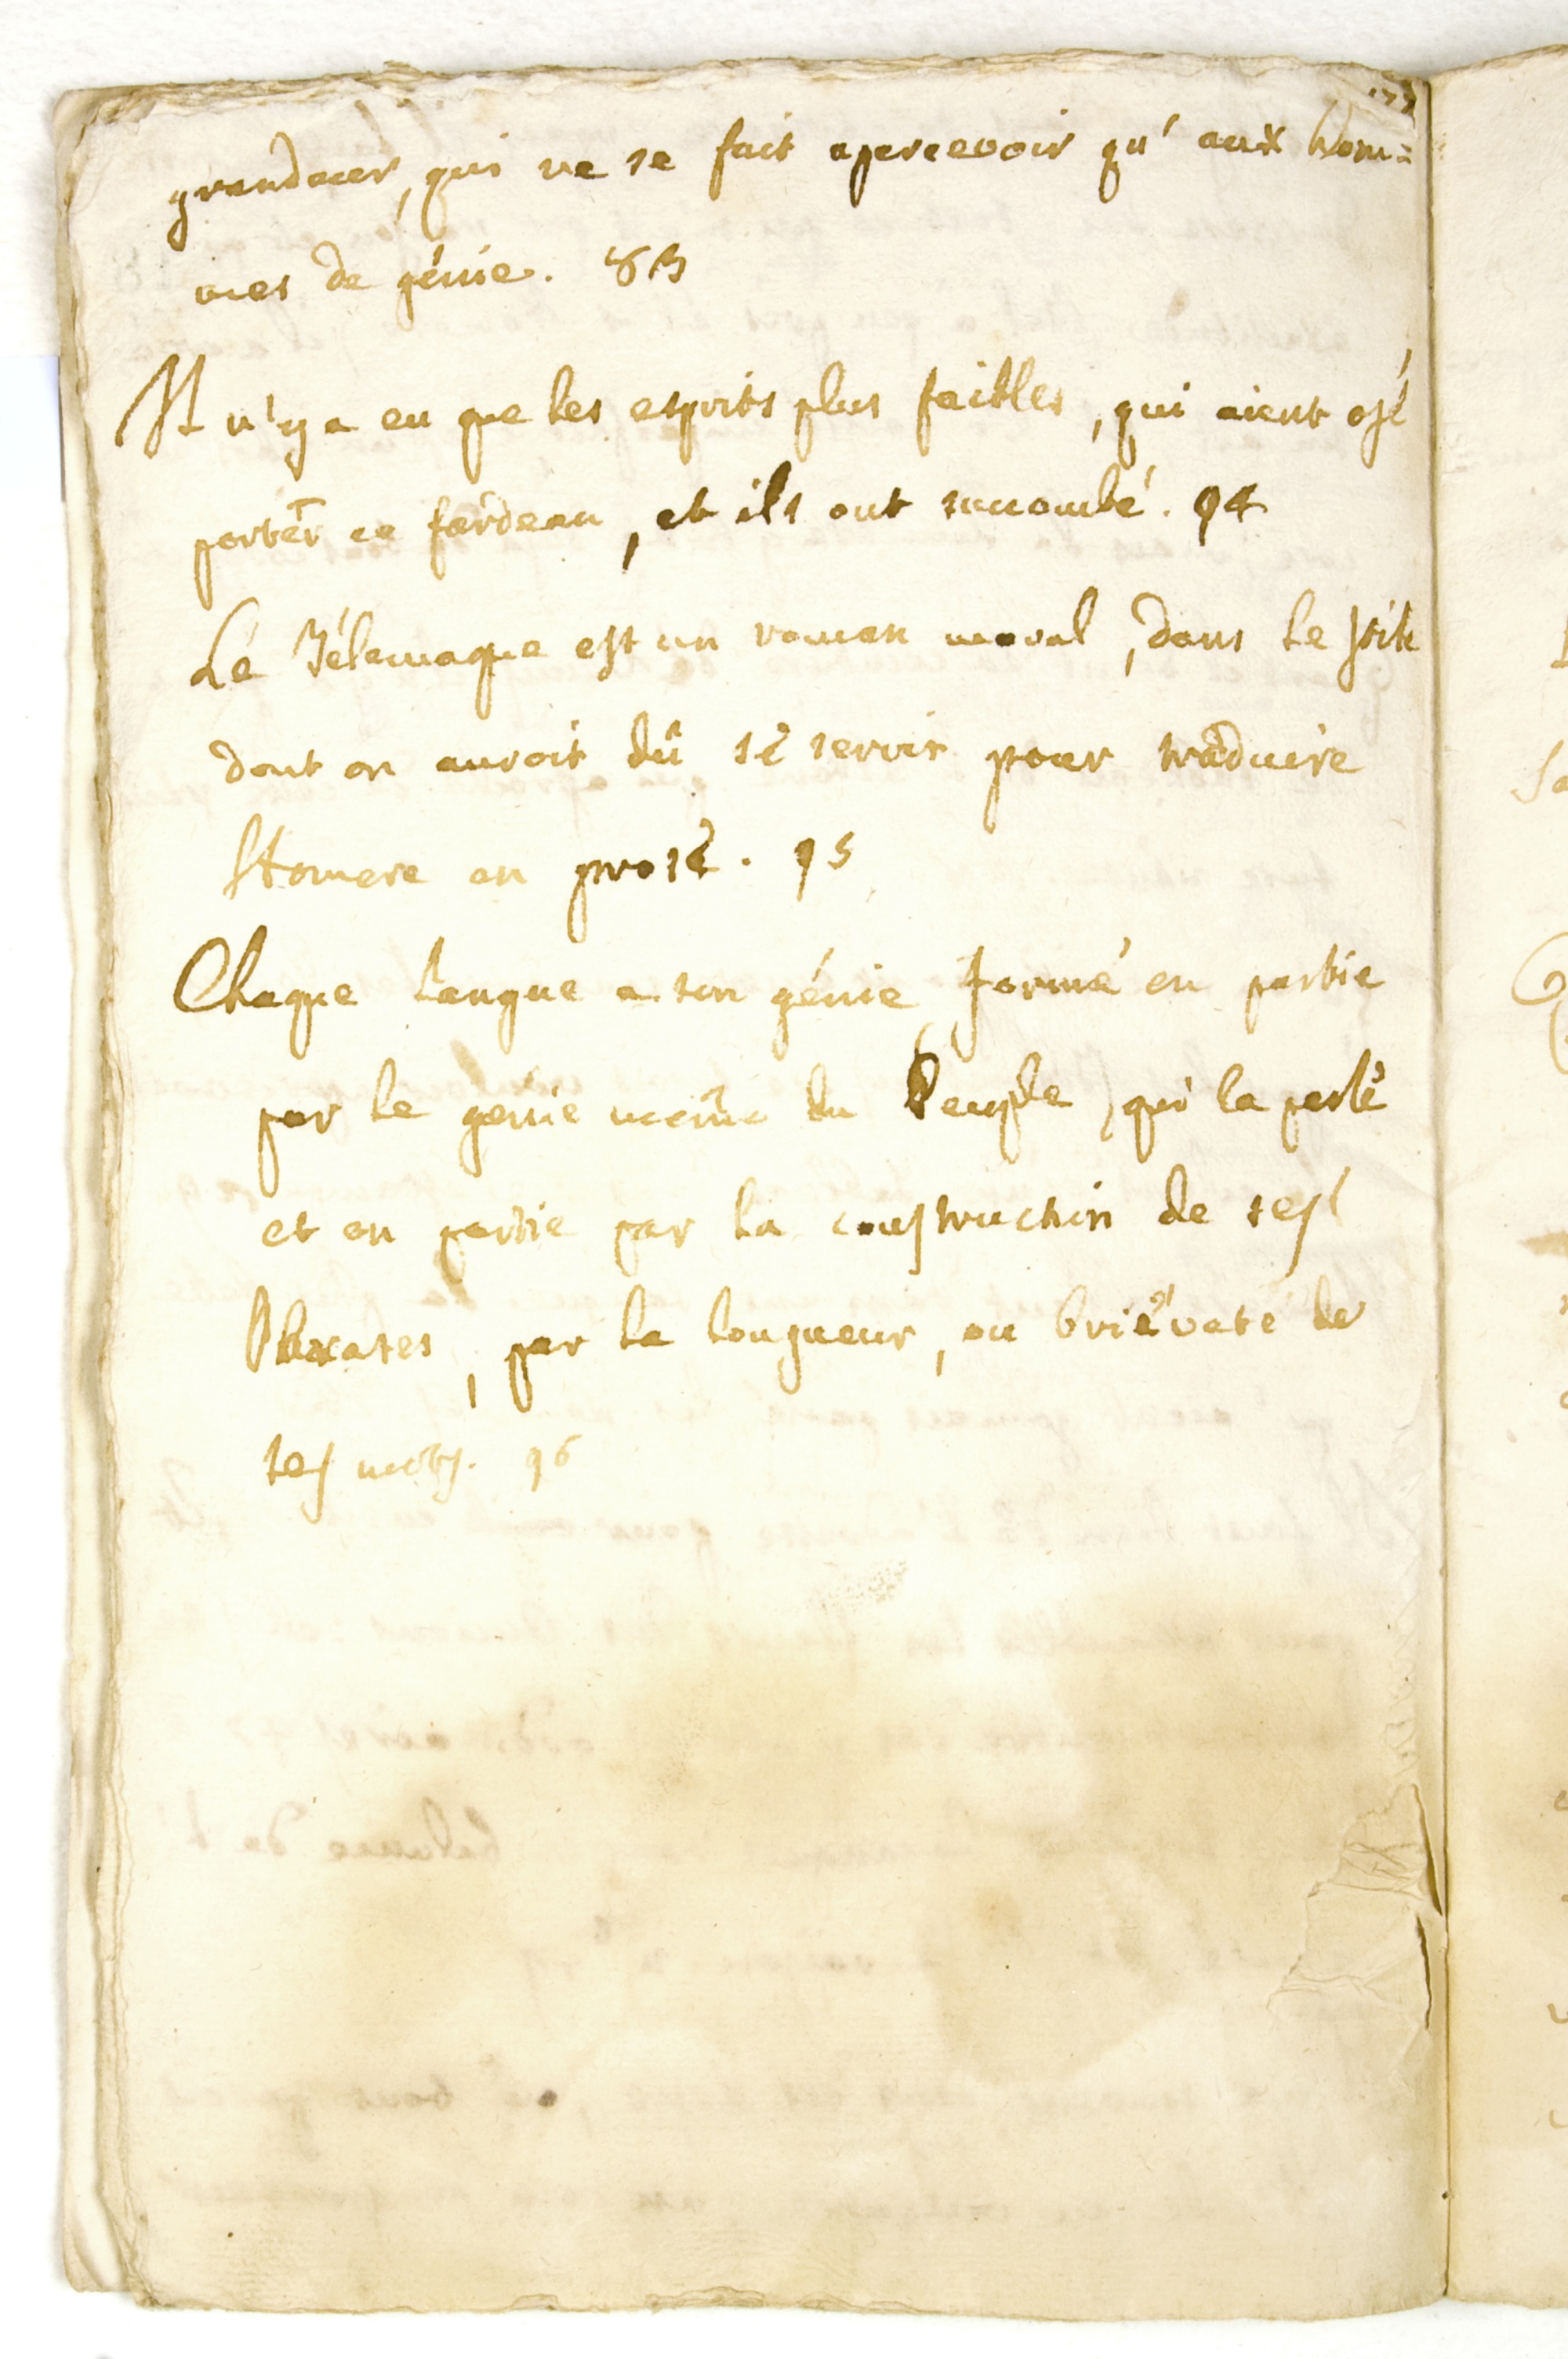 grandeur, qui ne se fait apercevoir qu' aux hom=
mes de génie. 83
Il n'y a eu que les esprits plus faibles, qui aient osé
porter ce fardeau, et ils ont succombé. 94
Le Télemaque est un roman moral, dans le stile
dont on auroit dû se servir pour traduire
Homere en prose. 95
Chaque langue a son génie formé en partie
par le genie même du Peuple, qui la parle
et en partie par la construction de ses
Phrases, par la longueur, ou brièveté de
ses mots. 96